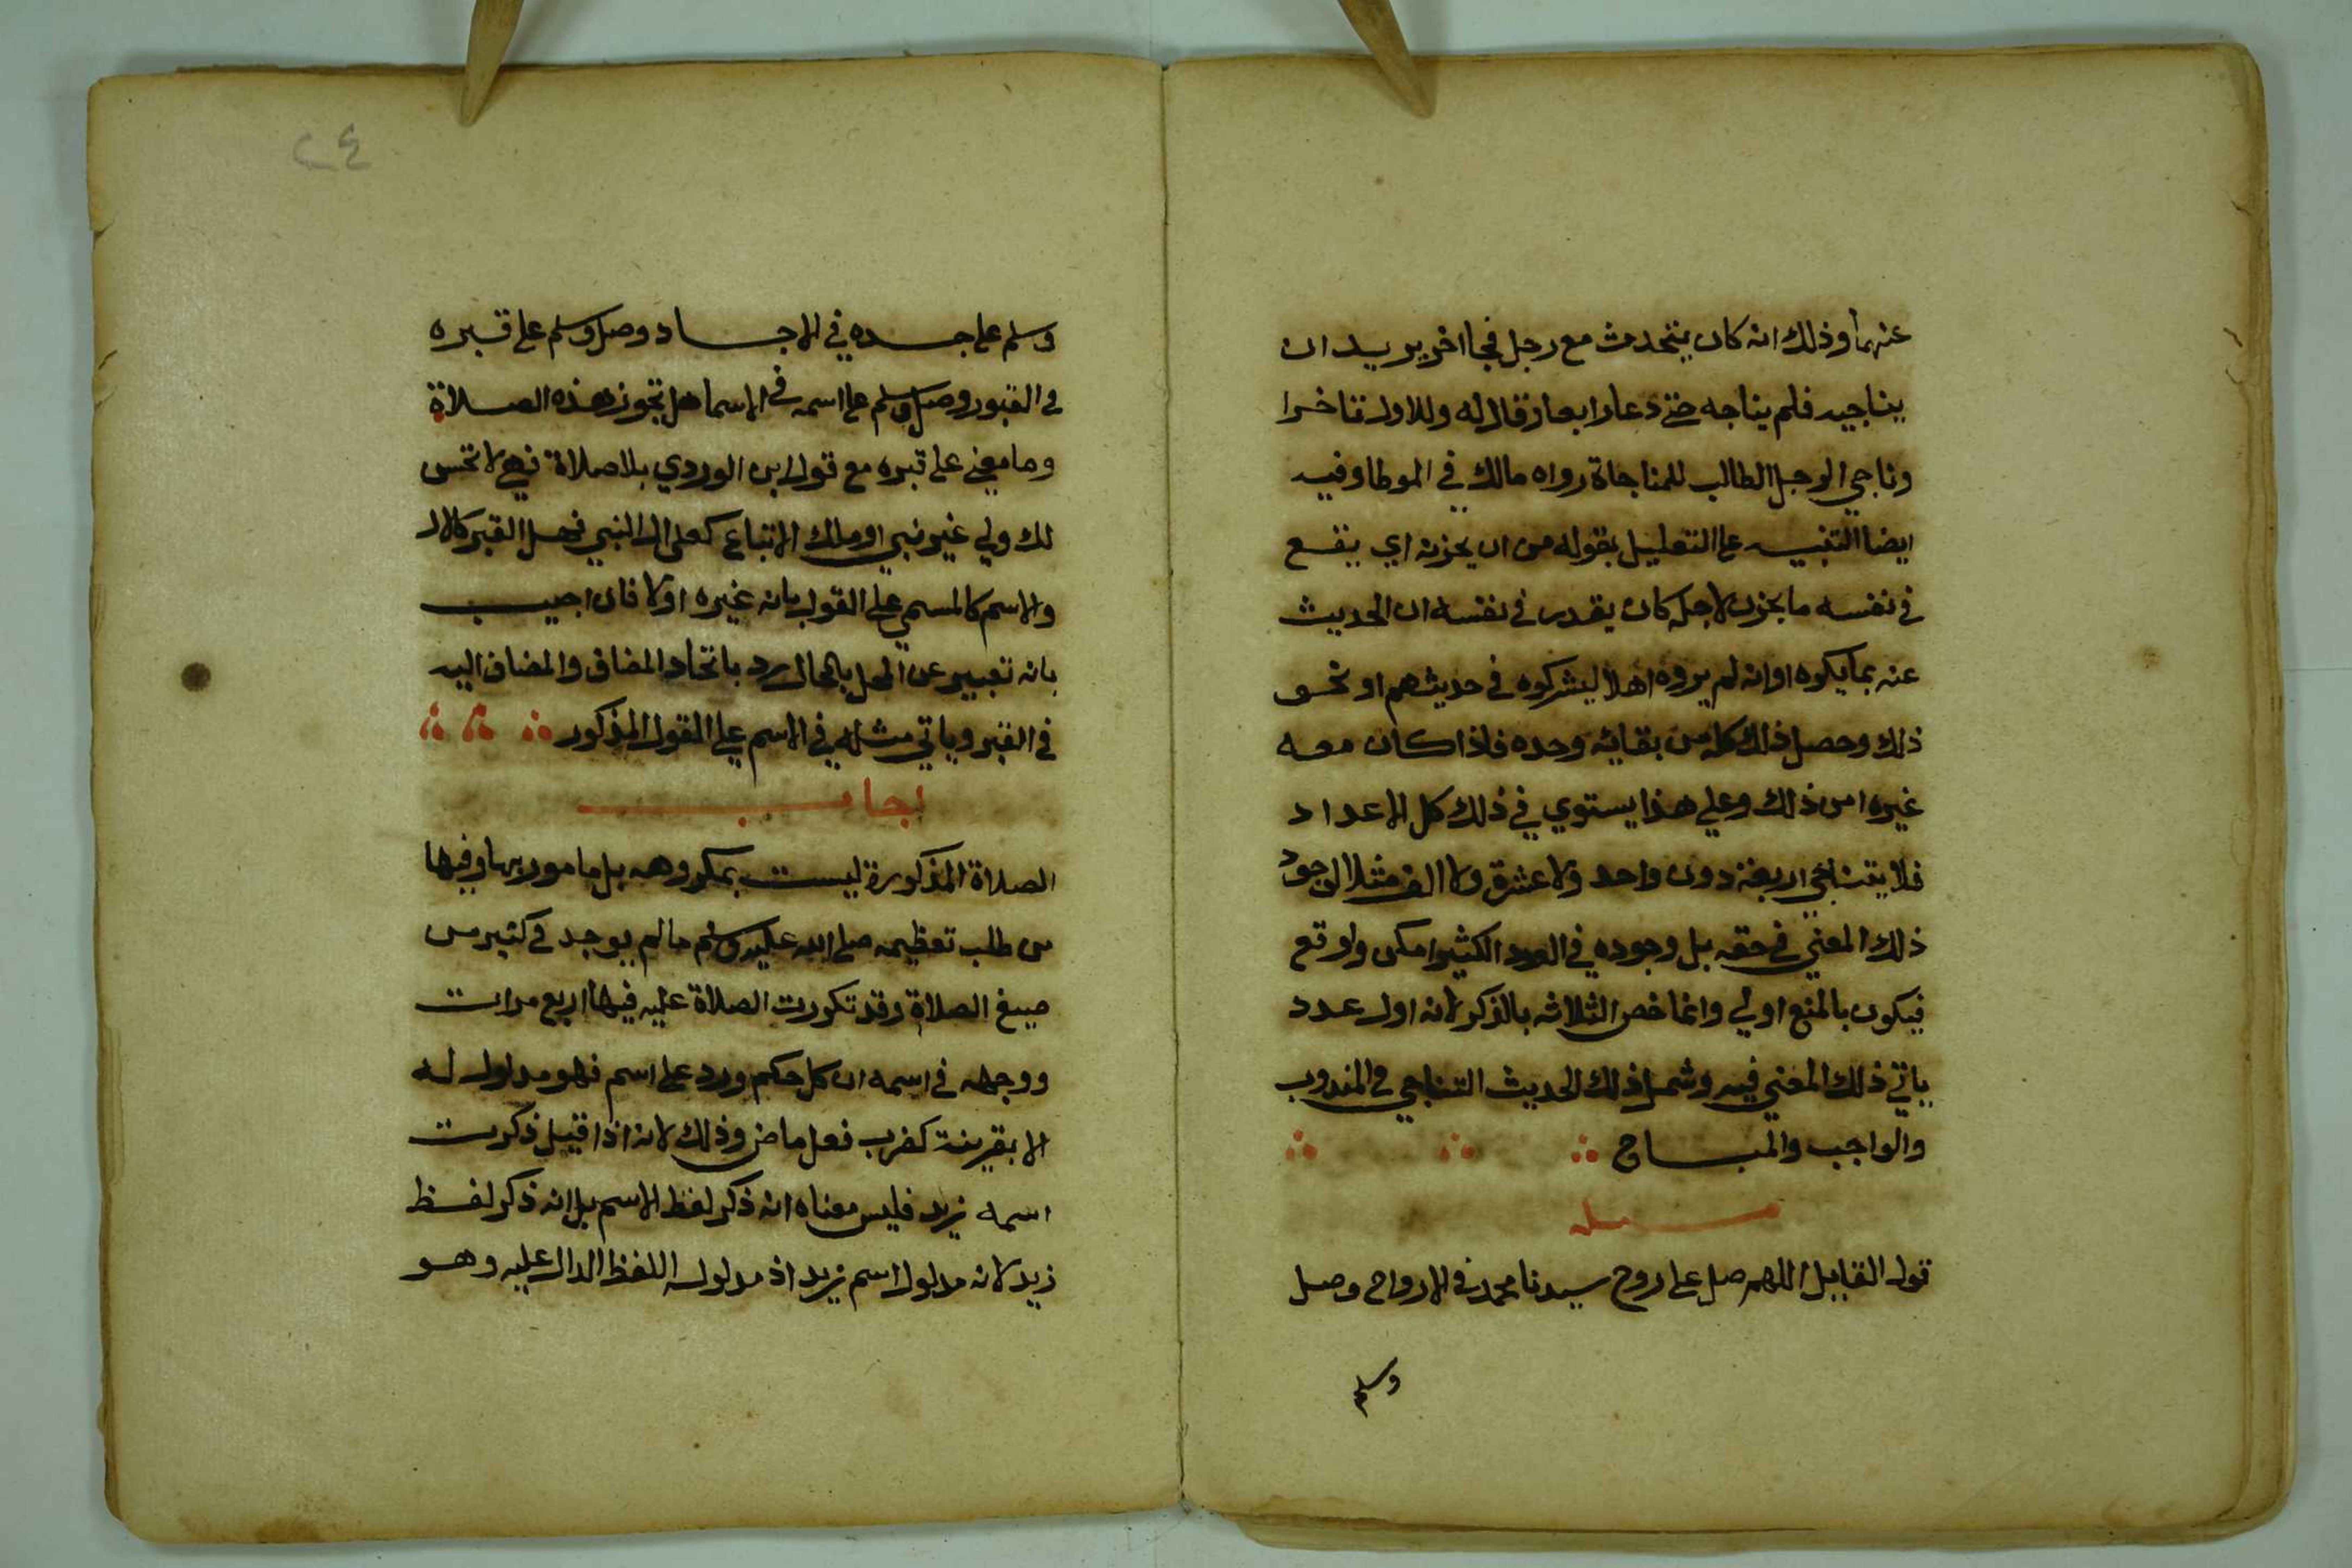 عنهما وذلك انه كان يتحدث مع رجل فجا اخر يريد ان
يناجيه فلم يناجه حتى دعا رابعا وقال له وللاول تاخرا
وناجي الرجل الطالب للمناجاة رواه مالك في الموطا وفيه
ايضا التنبيه على التعليل بقوله من ان يحزنه اي يقع
في نفسه ما يحزن لاجله كان يقدر في نفسه ان الحديث
عنه بما يكره او انه لم يروه اهلا ليشركوه في حديثهم او نحو
ذلك وحصل ذلك كله من بقائه وحده فاذا كان معه
غيره امن ذلك وعلي هذا يستوي في ذلك كل الاعداد
فلا يتناجي اربعة دون واحد ولا عشرة ولا الف مثلا لوجود
ذلك المعني في حقه بل وجوده في العدد الكثير امكن واوقع
فيكون بالمنع اولي وانما خص الثلاثه بالذكر لانه اول عدد
ياتي ذلك المعني فيه وشمل ذلك الحديث التناجي في المندوب
والواجب والمباح
مسله
قول القايل اللهم صل على روح سيدنا محمد في الارواح وصل
وسلم
٢٤
وسلم على جسده في الاجساد وصل وسلم على قبره
في القبور وصل وسلم على اسمه في الاسما هل تجوز هذه الصلاة
وما معني على قبره مع قول ابن الوردي بلا صلاة فهي لا تحسن
لك ولي غير نبي او ملك الاتباع كعلى ال النبي فهل القبر كالال
والاسم كالمسمي على القول بانه غيره او لا فان اجيب
بانه تعبير عن المحل بالحال رد باتحاد المضاف والمضاف اليه
في القبر وياتي مثله في الاسم على القول المذكور
اجاب
الصلاة المذكورة ليست بمكروهه بل مامور بها وفيها
من طلب تعظيمه صلى الله عليه وسلم ما لم يوجد في كثير من
صيغ الصلاة وقد تكررت الصلاة عليه فيها اربع مرات
ووجهه في اسمه ان كل حكم ورد على اسم فهو مدلول له
الا بقرينة كضرب فعل ماض وذلك لانه اذا قيل ذكرت
اسمه زيد فليس معناه انه ذكر لفظ الاسم بل انه ذكر لفظ
زيد لانه مدلول اسم زيد اذ مدلوله اللفظ الدال عليه وهو